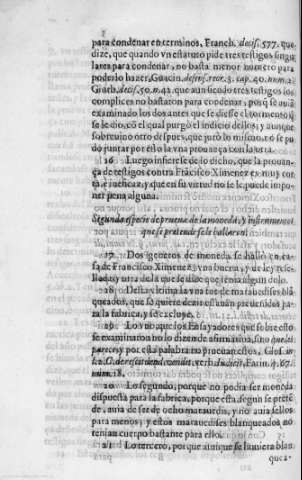 para condenar en terminos, Franch. decis. 577. que
dize, que quando vn estatuto pide tres testigos singu
lares para condenar, no basta menor numero para
poderlo hazer, Guacin. defens. reor. 3. cap. 40. num. 2.
Giurb. decis. 50. n. 42. que aun siendo tres testigos los
complices no bastaron para condenar, porq̃ se auiã
examinado los dos antes que se diesse el tormento q̃
se le dio, cõ el qual purgò el indicio dellos; y aunque
sobreuino otro despues, que juró lo mismo, no se pu
do juntar por esso la vna prouança con la otra.
16 Luego infierese de lo dicho, que la prouan
ça de testigos contra Frãcisco Ximenez es muy cor
ta, è ineficaz, y que en su virtud no se le puede impo
ner pena alguna.
Segunda especie de prueua de la moneda, y instrumentos
que se pretende se le hallaron.
17 Dos generos de moneda se hallò en ca
sa de Francisco Ximenez, vna buena, y de ley
y otra de la que se dize que tenia algun dolo.
18 Desta vltima la vna fue de marauedises blã
queados, que se quiere dezir estauan preuenidos pa
ra la fabrica, y se excluye.
19 Lo vno, que los Ensayadores que sobre esto
se examinaron no lo dizente afirmatiuè, sino que les
parece, y por esta palabra no prueuan estos, Glos. in
verb. Iudicij, Farin. q. 67.
num. 18.
20 Lo segundo, porque no podia ser moneda
dispuesta para la fabrica, porque esta segun se preten
de, auia de ser de ocho marauedis, y no auia sellos
para menos; y estos marauedises blanqueados no
tenian cuerpo bastante para ello.
21 Lo tercero, porque aunque se huuiera blan
quea-